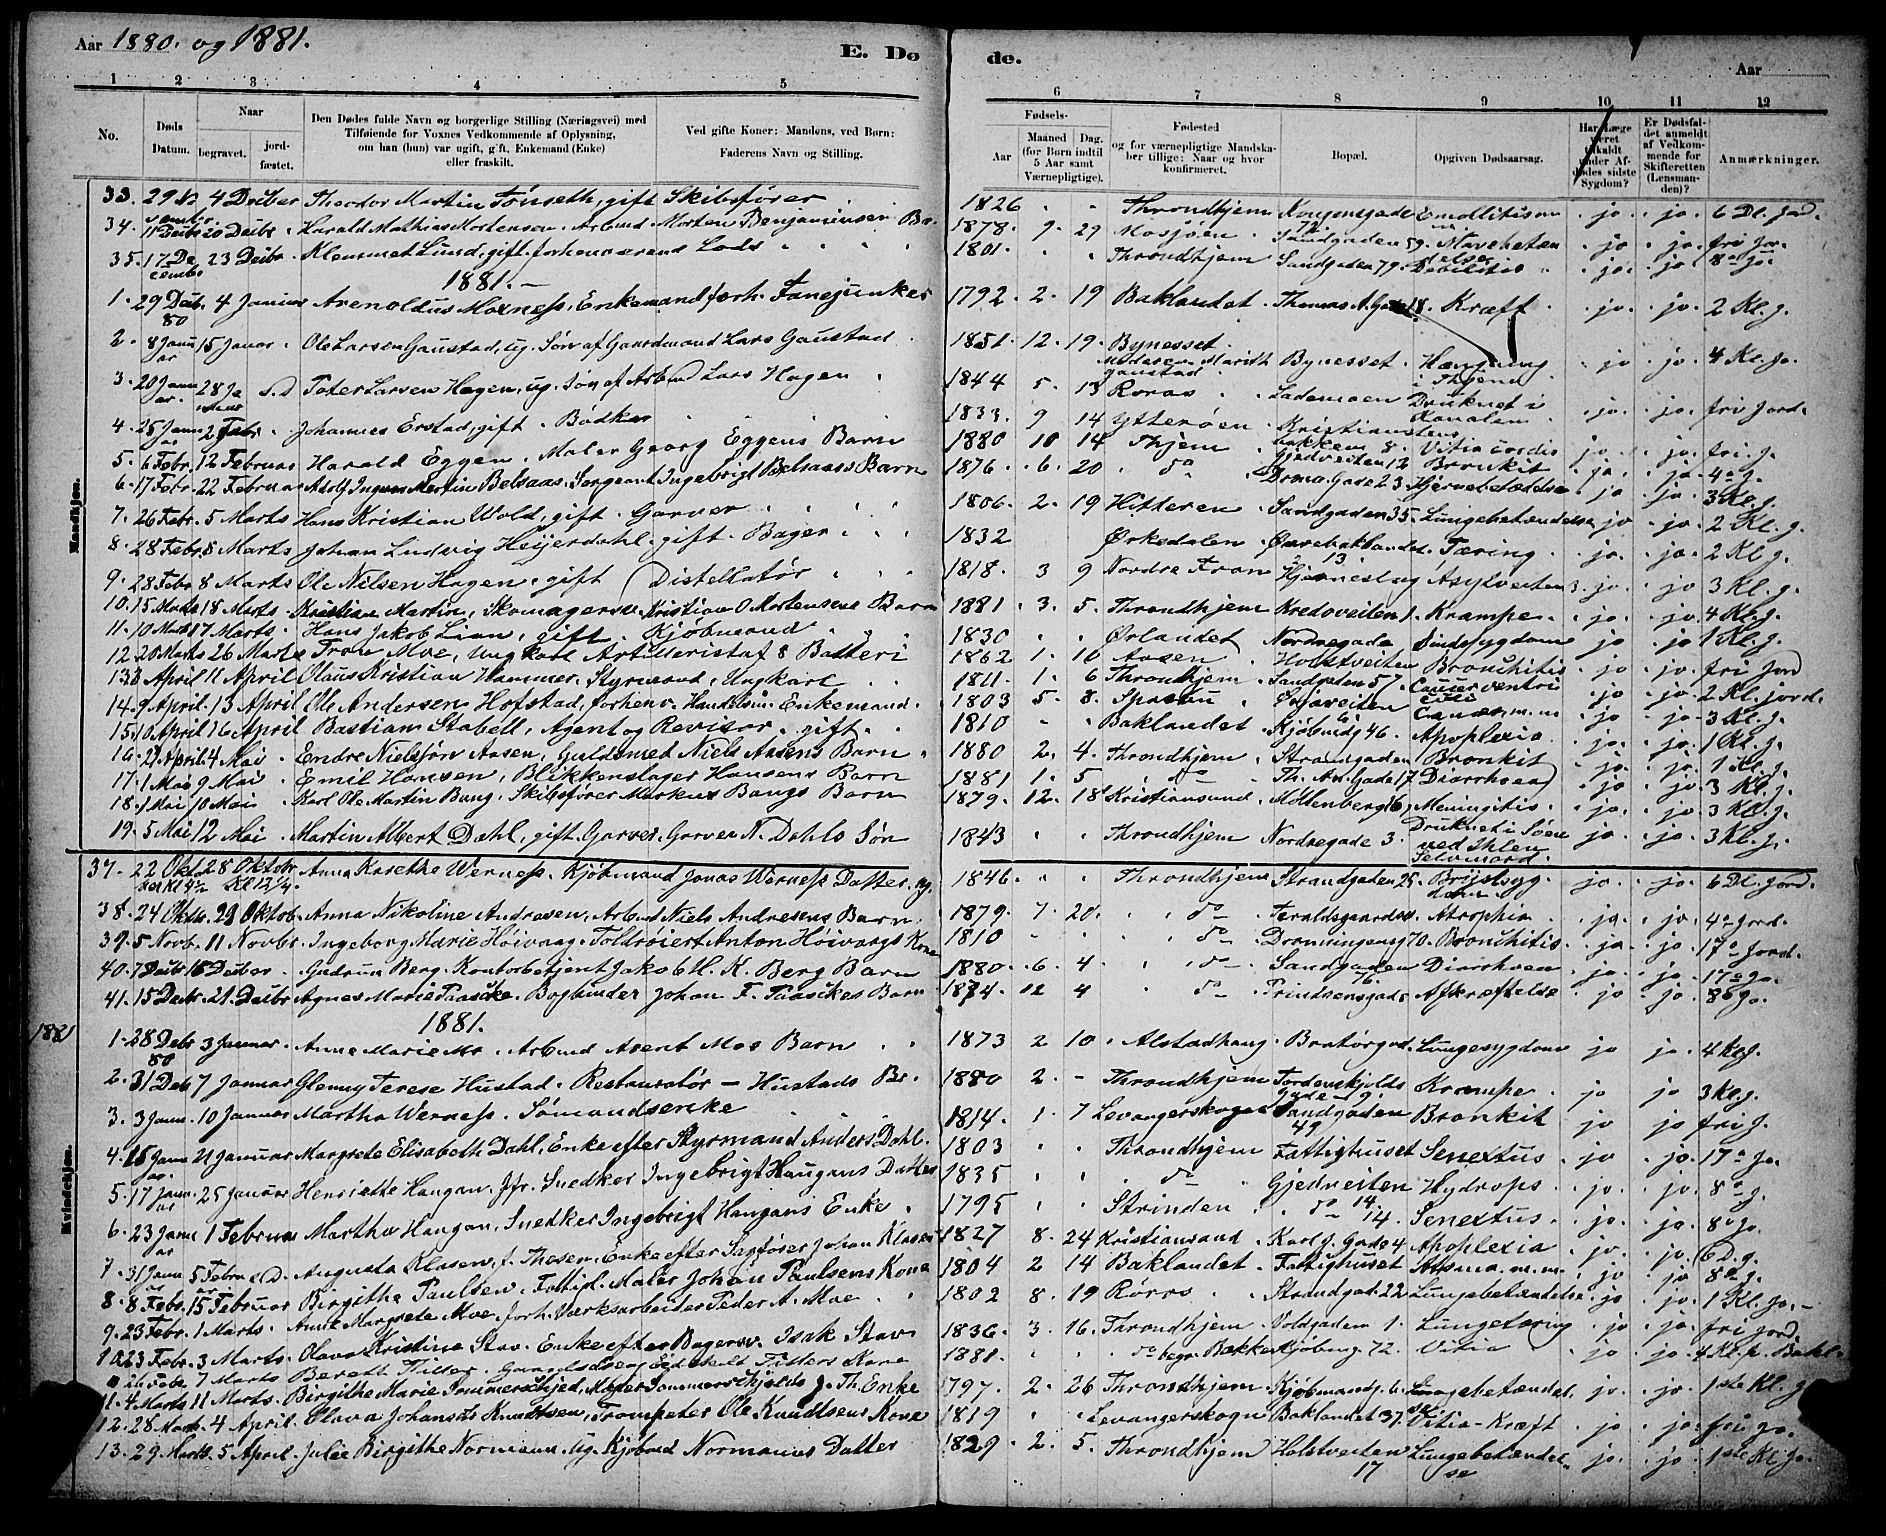 Aar 1880. og 1881.
E. Dø
de.
Aar
1 2 3 4 5 6 7 8 9 10 11 12
No.
Døds Datum.
Naar
begravet.
jord-fæstet.
Den Dødes fulde Navn og borgerlige Stilling (Næringsvei) med
Tilføiende for Voxnes Vedkommende af Oplysning,
om han (hun) var ugift, gift, Enkemand (Enke)
eller fraskilt.
Ved gifte Koner: Mandens, ved Børn:
Faderens Navn og Stilling.
Fødsels-
Aar
Maaned Dag.
(for Børn indtil
5 Aar samt
Værnepligtige).
Fødested
og for værnepligtige Mandska-
ber tillige: Naar og hvor
konfirmeret.
Bopæl.
Opgiven Dødsaarsag.
Har Læge
været
tilkaldt
under Af-
dødes sidste
Sygdom?
Er Dødsfal-
det anmeldt
af Vedkom-
mende for
Skifteretten
(Lensman-
den)?
Anmærkninger.
Mandkjøn.
33. 29 4 Deibr Theodor Martin Tønseth, gift Skibsfører 1826 Throndhjem Kongensgade Emollitio jo jo 6 Dl. Jord.
34. 11 Deibr 20 Deibr Harald Mathias Mortensen. Arbmd Morten Benjaminsen 1878. 9. 29 Mosjøen Sandgaden 59. Mavebetændelse jo jo fri Jor.
35. 17 December 23 Deibr Klemmet Lund, gift. forhenværende Lods 1801. Throndhjem Sandgaden 79. Debilitas jo jo 8de jo.
1881.
1. 29 Deib. 80 4 Januar Arnoldus Moxness, Enkemand forh. Fanejunker 1792. 2. 19 Baklandet Thomas A. Gade 18. Kræft jo. jo. 2 Kl. j.
2. 8 Januar 15 Januar. Ole Larsen Gaustad, ug. Søn af Gaardmand Lars Gaustad 1851. 12. 19. Bynesset. Moderen Marith Gaustad Bynesset Hængning i Thjem jo jo. 4 Kl. Jo.
3. 20 Januar. 28 Januar s.D Peter Larsen Hagen, ug. Søn af Arbmd Lars Hagen 1844 5. 13 Røros Lademoen Druknet i Kanalen jo. jo. fri Jord.
4. 25 Januar 2 Febr. Johannes Erstad, gift. Bødker 1833. 9 14 Ytterøen Kristianstens bakken 8. Vitia cordis jo. jo. fri. j.
5. 6 Febr. 12 Februar Harald Eggen. Maler Georg Eggens Barn 1880 10 14 Thjem Gjedveiten 12 Bronkit jo. jo. 4de j.
6. 17 Febr. 22 Februar Adolf Martin Belsaas, Sergeant Ingebrigt Belsaas Barn 1876. 6. 20 do Drng. Gade 23 Hjernebetændelse jo jo. 3 Kl. j.
7. 26 Febr. 5 Marts Hans Kristian Wold, gift. Garver 1806. 2. 19 Hitteren Sandgaden 35. Lungebetændelse jo jo. 2 Kl. j.
8. 28 Febr. 8 Marts Johan Ludvig Heijerdahl. gift. Bager 1832 Ørkedalen Øvrebaklandet 13 Tæring. jo. jo. 2 Kl. j.
9. 28 Febr 8 Marts Ole Nilsen Hagen, gift Distellatør 1818. 3 9 Nordre Fron Asylveiten 3. jo. jo 3 Kl. j.
10. 15 Marts 18 Marts. Kristian Martin, Skomagersv. Kristian O Mortensens Barn 1881. 3. 5. Throndhjem Kredoveiten 1. Krampe. jo. jo. 4 Kl. j.
11. 10 Marts 17 Marts. Hans Jakob Lian, gift. Kjøbmand 1830 Ørlandet Nordregade Sindssygdom jo jo 1 Kl. j.
12. 20 Marts 26 Marts Tron Moe, Ungkarl Artillerist af 8 Batteri 1862 1. 10 Aasen Holstveiten Bronchitis jo. jo. fri Jord
13. 8 April 11 April Olaus Kristian Hammer. Styrmand, Ungkarl 1811. 1. 6 Throndhjem Sandgaden 57. Cancer ventriculi jo jo. 2 Kl. Jord.
14. 9 April. 13 April Ole Andersen Hofstad, forhenv. Handelsm. Enkemand. 1803 5. 8. Sparbu Østaveiten Cancer. jo jo. 2 Kl. jord.
15. 10 April 16 April Bastian Stabell, Agent og Revisor. gift. 1810 Baklandet Kjøbmdg 46. Apoplexia jo. jo. 3 Kl. j.
16. 27 April 4 Mai Endre Nielssøn Aasen, Guldsmed Niels Aasens Barn 1880 2. 4. Throndhjem Strandgaden Bronkit jo. jo. 1 Kl. j.
17. 1 Mai 9 Mai Emil Hansen, Blikkenslager Hansens Barn 1881 1. 5 do Th. An. Gade 17 Diarrhoea jo. jo. 3 Kl. j.
18. 1 Mai 10 Mai Karl Ole Martin Bang, Skibsfører Markus Bangs Barn 1879. 12. 18 Kristiansund Møllenberg 6 Meningitis jo jo. 3 Kl. j.
19. 5 Mai 12 Mai Martin Albert Dahl, gift Garver. Garver N. Dahls Søn 1843 Throndhjem Nordregade 3. Druknet i Søen ved Ihlen Selvmord. jo. jo. 3 Kl. j.
Kvindekjøn.
37. 22 Oktober Kl 4½ 28 Oktobr Kl 12¼. Anna Karethe Werness. Kjøbmand Jonas Werness Datter, ug. 1846. Throndhjem Strandgaden 25. Brystsygdom jo. jo. 6 Dl. Jord.
38. 24 Oktb. 29 Oktob. Anna Nikoline Andresen, Arbmd Niels Andresens Barn. 1879. 7. 20. do Atrophia jo. jo. 4de Jord.
39. 5 Novb. 11 Novbr. Ingeborg Marie Høivaag. Toldrøiert Anton Høivaags Kone 1810 do Dronningensg 70. Bronchitis jo. jo. 17de Jord.
40. 7 Deibr 16 Deibr. Gudrun Berg. Kontorbetjent Jakob H. K. Berg Barn 1880. 6. 4. do Sandgaden 76. Diarrhoea jo. jo. 17de Jo.
41. 15 Decbr. 21. Deibr Agnes Marie Paasche. Bogbinder Johan F. Paasches Barn 1874. 12 4 do Prindsensgade Afkræftelse jo jo. 8de Jo.
1881.
1881
1. 28 Debr 80 3 Januar. Anne Marie Mo. Arbmd Arent Mos Barn 1873 2 10. Alstadhaug Bratørgd. Lungesygdom jo jo. 4 Kl. j.
2. 31 Deb 7 Januar Glenny Terese Hustad. Restauratør — Hustads Br. 1880 2. - Throndhjem Tordenskjolds Gade 9. Krampe jo jo 3 Kl. j.
3. 3 Janr. 10 Januar Martha Werness. Sømandsenke 1814. 1. 7 Levangerskogn Sandgaden 49 Bronkit jo jo fri j.
4. 15 Januar 21 Januar Margrete Elisabeth Dahl, Enke efter Styrmand Anders Dahl. 1803 Throndhjem Fattighuset Senectus jo jo. 17de Jo.
5. 17 Januar 25 Januar Henriette Haugan, Jfr. Snedker Ingebrigt Haugans Datter 1835 do Gjedveiten 14. Hydrops jo. jo. 8de j.
6. 23 Januar 1 Februar Martha Haugan, Snedker Ingebrigt Haugans Enke 1795 Strinden do 14 Senectus. jo. jo. 8de Jo.
7. 31 Januar 5 Februar s.D. Augusta Klasen, f. Thesen, Enke efter Sagfører Johan Klasen 1827 8. 24 Kristiansand Karl J. Gade 4 Apoplexia jo. jo. 6 D. j.
8. 8 Febr. 15 Februar Birgithe Paulsen. Fattigl. Maler Johan Paulsens Kone 1804 2 14 Baklandet Fattighuset Astma. m.m. jo jo 8de j.
9. 23 Febr. 1 Marts. Anne Margrete Moe, forh. Værksarbeider Peder A. Moe 1802 8. 19 Røros Strandgad. 22 Lungebetændelse jo jo. 1 Kl. Jo.
10. 23 Febr. 3 Marts. Olava Kristine Stav. Enke efter Bagersv. Isak Stav 1836. 3. 16. Throndhjem Voldgaden 1. Lungetæring jo jo fri Jord.
7 Marts Bereth Tiller. Tillers Kone 1881. do begr. Bakke Kjøbmg. 72. Vitia jo jo. 4 Kl. p. Bakl.
11. 4 Marts 11 Marts. Birgithe Marie Sommerschjed, Maler Sommerschjelds Enke 1797. 2. 26 Throndhjem Kjøbmandg. 6. Lungebetændelse jo. jo. 1ste Kl. j
12. 28 Marts. 4 April. Olava Johansdt Knudtsen, Trompeter Ole Knudtsens Kone 1819 Levangerskogn Baklandet 37. Vitia - Kræft jo jo. fri jo.
13. 29. Marts. 5 April. Julie Birgithe Normann, Ug. Kjøbmd Normanns Datter 1829. 2. 5. Throndhjem Holstveiten 17 Lungebetændelse jo. jo. 1ste Kl. Jo.